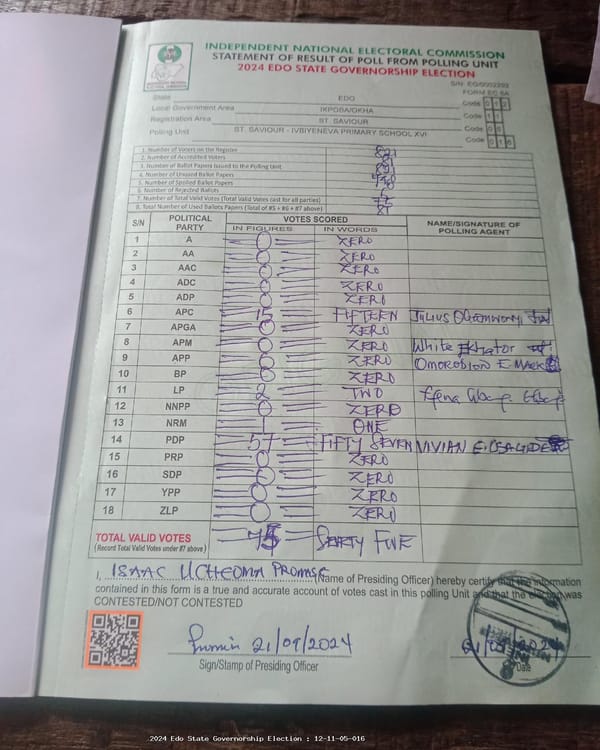 INDEPENDENT NATIONAL ELECTORAL COMMISSION
STATEMENT OF RESULT OF POLL FROM POLLING UNIT
2024 EDO STATE GOVERNORSHIP ELECTION
FORM EC 8A
State EDO Code 0 1 2
Local Government Area IKPOBA/OKHA Code 1 1
Registration Area ST. SAVIOUR Code 0 5
Polling Unit ST. SAVIOUR - IVBIYENEVA PRIMARY SCHOOL XVI Code 0 1 6
1. Number of Voters on the Register
2. Number of Accredited Voters
3. Number of Ballot Papers Issued to the Polling Unit
4. Number of Unused Ballot Papers
5. Number of Spoiled Ballot Papers
6. Number of Rejected Ballots
7. Number of Total Valid Votes (Total Valid Votes cast for all parties)
8. Total Number of Used Ballots Papers (Total of #5 + #6 + #7 above)
S/N POLITICAL PARTY VOTES SCORED NAME/SIGNATURE OF POLLING AGENT
IN FIGURES IN WORDS
1 A 0 ZERO
2 AA 0 ZERO
3 AAC 0 ZERO
4 ADC 0 ZERO
5 ADP 0 ZERO
6 APC 15 FIFTEEN JULIUS
7 APGA 0 ZERO
8 APM 0 ZERO White
9 APP 0 ZERO OMOROBION E MARK
10 BP 0 ZERO
11 LP 2 TWO
12 NNPP 0 ZERO
13 NRM 1 ONE
14 PDP 57 FIFTY SEVEN VIVIAN
15 PRP 0 ZERO
16 SDP 0 ZERO
17 YPP 0 ZERO
18 ZLP 0 ZERO
TOTAL VALID VOTES 75 FIVE
(Record Total Valid Votes under #7 above)
I, ISAAC UCHEOMA PROMISE (Name of Presiding Officer) hereby certify that the information
contained in this form is a true and accurate account of votes cast in this polling Unit and that the election was
CONTESTED/NOT CONTESTED
21/09/2024
Sign/Stamp of Presiding Officer Date
2024 Edo State Governorship Election : 12-11-05-016